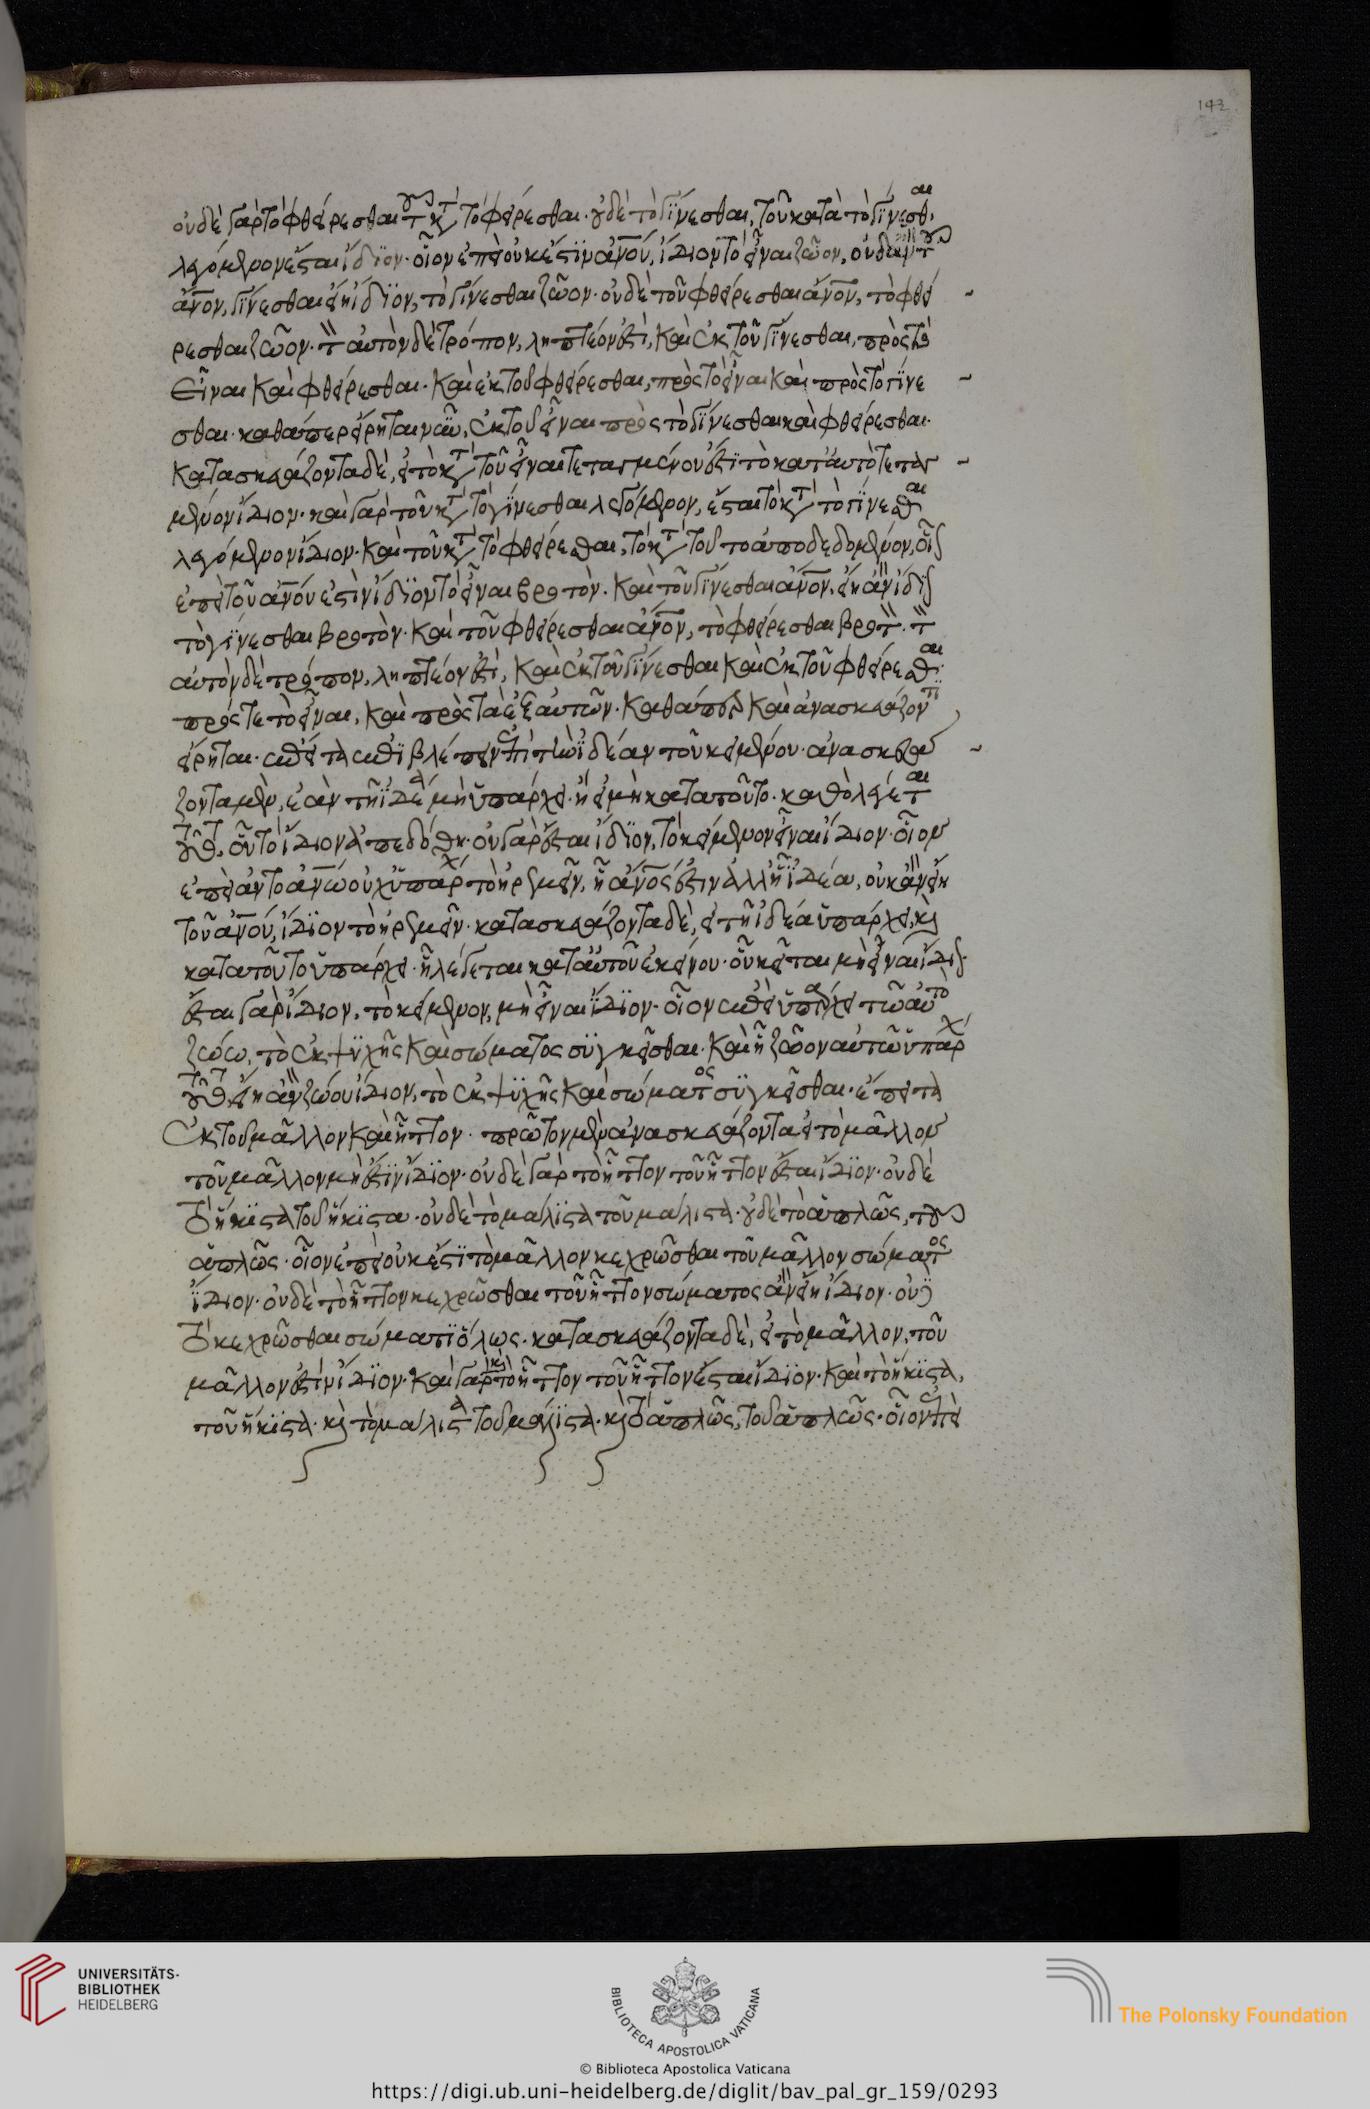 142
οὐδὲ γὰρ τὸ φθείρεσθαι τοῦ κατὰ τὸ φθείρεσθαι· οὐδὲ τὸ γίνεσθαι, τοῦ κατὰ τὸ γίνεσθαι
λεγόμενον ἔσται ἴδιον· οἷον ἐπεὶ οὐκ ἔστιν ἀνου, ἴδιον τὸ εἶναι ζῶον, οὐδ᾽ ἂν τοῦ
ἄνον, γίνεσθαι εἴη ἴδιον, τὸ γίνεσθαι ζῶον· οὐδὲ τοῦ φθείρεσθαι ἄνον, τὸ φθεί
ρεσθαι ζῶον. τὸν αὐτὸν δὲ τρόπον, ληπτέον ἐστὶ, καὶ ἐκ τοῦ γίνεσθαι, πρὸς τὸ
εἶναι καὶ φθείρεσθαι· καὶ ἐκ τοῦ φθείρεσθαι, πρὸς τὸ εἶναι καὶ πρὸς τὸ γίνε
σθαι· καθάπερ εἴρηται νῦν, ἐκ τοῦ εἶναι πρὸς τὸ γίνεσθαι καὶ φθείρεσθαι·
κατασκευάζοντα δὲ, εἰ τὸ κατὰ τοῦ εἶναι τεταγμένου ἐστὶ τὸ κατ᾽ αὐτὸ τεταγ
μένον ἴδιον· καὶ γὰρ τοῦ κατὰ τὸ γίνεσθαι λεγόμενον, ἔσται τὸ κατὰ τὸ γίνεσθαι
λεγόμενον ἴδιον· καὶ τοῦ κατὰ τὸ φθείρεσθαι, τὸ κατὰ τοῦτο ἀποδεδομένον, οἷον
ἐπεὶ τοῦ ἀνου ἐστὶν ἴδιον τὸ εἶναι βροτὸν· καὶ τοῦ γίνεσθαι ἄνον, εἴη ἂν ἴδιον
τὸ γίνεσθαι βροτὸν· καὶ τοῦ φθείρεσθαι ἄνον, τὸ φθείρεσθαι βροτὸν. τὸν
αὐτὸν δὲ τρόπον, ληπτέον ἐστὶ, καὶ ἐκ τοῦ γίνεσθαι καὶ ἐκ τοῦ φθείρεσθαι
πρός τε τὸ εἶναι, καὶ πρὸς τὰ ἐξ αὐτῶν· καθάπερ καὶ ἀνασκευάζοντι
εἴρηται· ἔπειτα ἐπιβλέπειν ἐπὶ τὴν ἰδέαν τοῦ κειμένου· ἀνασκευά
ζοντα μὲν, ἐὰν τῇ ἰδέᾳ μὴ ὑπάρχει· ἢ εἰ μὴ κατὰ τοῦτο· καθὸ λέγεται
τοῦθ᾽, οὗ τὸ ἴδιον ἀπεδόθη· οὐ γὰρ ἔσται ἴδιον, τὸ κείμενον εἶναι ἴδιον· οἷον
ἐπεὶ αὐτοανω οὐχ ὑπάρχει τὸ ἠρεμεῖν, ᾗ ἄνος ἐστιν ἀλλ᾽ ᾗ ἰδέα, οὐκ ἂν εἴη
τοῦ ἀνου, ἴδιον τὸ ἠρεμεῖν· κατασκευάζοντα δὲ, εἰ τῇ ἰδέα ὑπάρχει, καὶ
κατὰ τοῦτο ὑπάρχει· ᾗ λέγεται κατ᾽ αὐτοῦ ἐκείνου· οὗ κεῖται μὴ εἶναι ἴδιον·
ἔσται γὰρ ἴδιον, τὸ κείμενον, μὴ εἶναι ἴδιον· οἷον ἐπεὶ ὑπάρχει τῶ αὐτο
ζώω, τὸ ἐκ ψυχῆς καὶ σώματος συγκεῖσθαι· καὶ ᾗ ζῶον αὐτῶ ὑπάρχει
τοῦθ᾽, εἴη ἂν ζώου ἴδιον, τὸ ἐκ ψυχῆς καὶ σώματος συγκεῖσθαι· ἔπειτα
ἐκ τοῦ μᾶλλον καὶ ἧττον· πρῶτον μὲν ἀνασκευάζοντα εἰ τὸ μᾶλλον
τοῦ μᾶλλον μὴ ἔστιν ἴδιον· οὐδὲ γὰρ τὸ ἧττον τοῦ ἧττον ἔσται ἴδιον· οὐδὲ
τὸ ἥκιστα τοῦ ἥκιστα· οὐδὲ τὸ μάλιστα τοῦ μάλιστα· οὐδὲ τὸ ἁπλῶς, τοῦ
ἁπλῶς· οἷον ἐπεὶ οὐκ ἔστι τὸ μᾶλλον κεχρῶσθαι τοῦ μᾶλλον σώματος
ἴδιον· οὐδὲ τὸ ἧττον κεχρῶσθαι τοῦ ἧττον σώματος ἂν εἴη ἴδιον· οὐδὲ
τὸ κεχρῶσθαι σώματι ὅλως· κατασκευάζοντα δὲ, εἰ τὸ μᾶλλον, τοῦ
μᾶλλον ἐστὶν ἴδιον· καὶ γὰρ καὶ τὸ ἧττον τοῦ ἧττον ἔσται ἴδιον· καὶ τὸ ἥκιστα,
τοῦ ἥκιστα· καὶ τὸ μάλιστα τοῦ μάλιστα· καὶ τὸ ἁπλῶς, τοῦ ἁπλῶς· οἷον ἐπεὶ
UNIVERSITÄTS-
BIBLIOTHEK
HEIDELBERG
BIBLIOTECA APOSTOLICA VATICANA
© Biblioteca Apostolica Vaticana
The Polonsky Foundation
https://digi.ub.uni-heidelberg.de/diglit/bav_pal_gr_159/0293